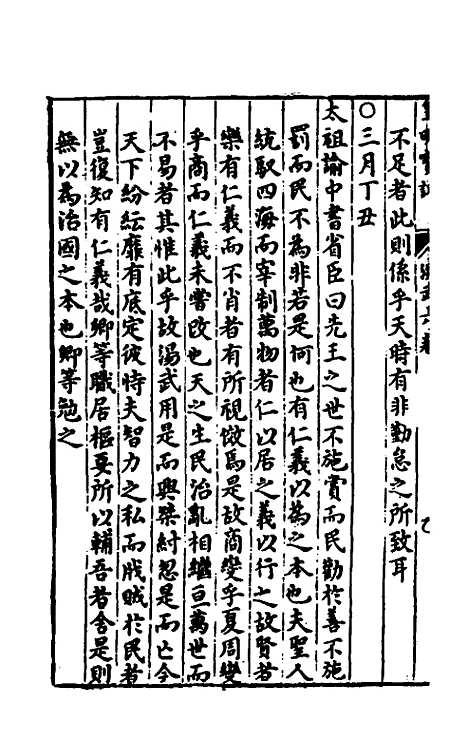 不足者此則係乎天時有非勤怠之所致耳
○三月丁丑
太祖諭中書省臣曰先王之世不施賞而民勸於善不施
罰而民不為非若是何也有仁義以為之本也夫聖人
統馭四海而宰制萬物者仁以居之義以行之故賢者
樂有仁義而不肖者有所視倣焉是故商變乎夏周變
乎商而仁義未嘗改也天之生民治亂相繼亘萬世而
不易者其惟此乎故湯武用是而興桀紂忽是而亡今
天下紛紜靡有底定彼恃夫智力之私而戕賊於民者
豈復知有仁義哉卿等職居樞要所以輔吾者舍是則
無以為治國之本也卿等勉之